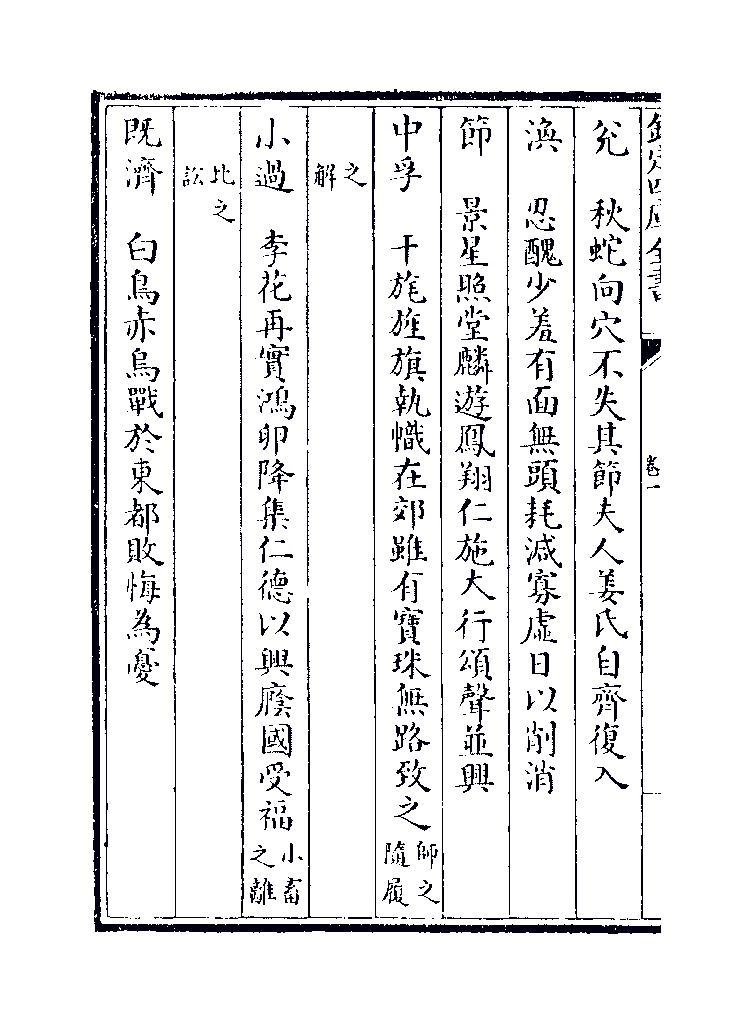 欽定四庫全書 卷一
兌 秋蛇向穴不失其節夫人姜氏自齊復入
渙 忍醜少羞有面無頭耗減寡虛日以削消
節 景星照堂麟遊鳳翔仁施大行頌聲並興
中孚 干旄旌旗執幟在郊雖有寶珠無路致之 師之隨履
之解
小過 李花再實鴻卵降集仁德以興廕國受福 小畜之離
比之訟
既濟 白鳥赤烏戰於東都敗悔為憂